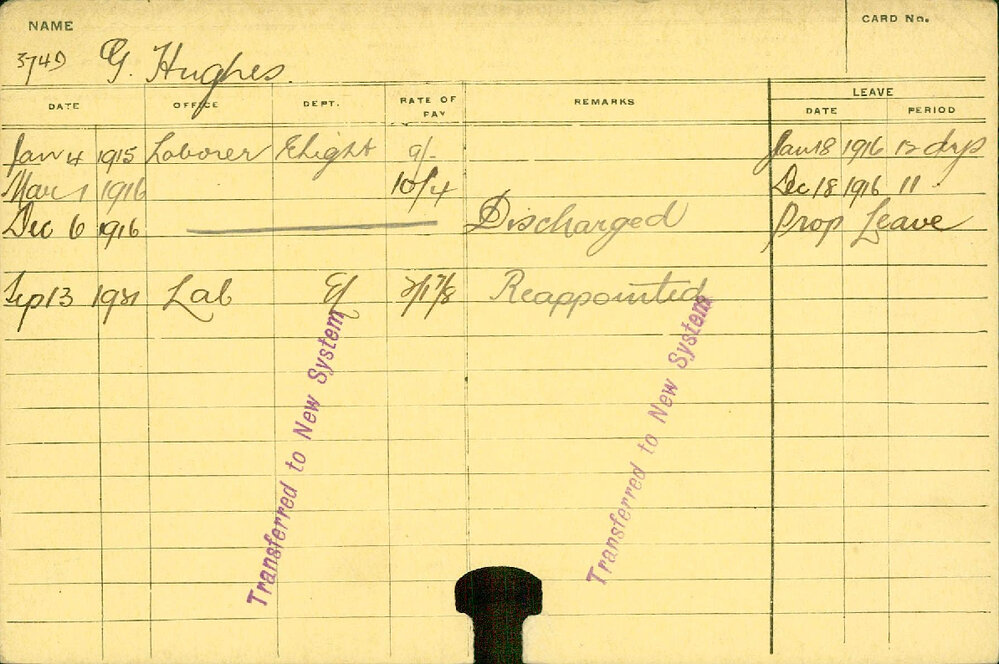 NAME
CARD No.
3749 G. Hughes.
DATE OFFICE DEPT. RATE OF PAY REMARKS LEAVE
DATE PERIOD
Jan 4 1915 Laborer Elight 9/- Jan 18 1916 12 dys
Mar 1 1916 10/4 Dec 18 1916 11 "
Dec 6 1916 Discharged Prop Leave
Sep 13 1921 Lab El Reappointed
Transferred to New System
Transferred to New System